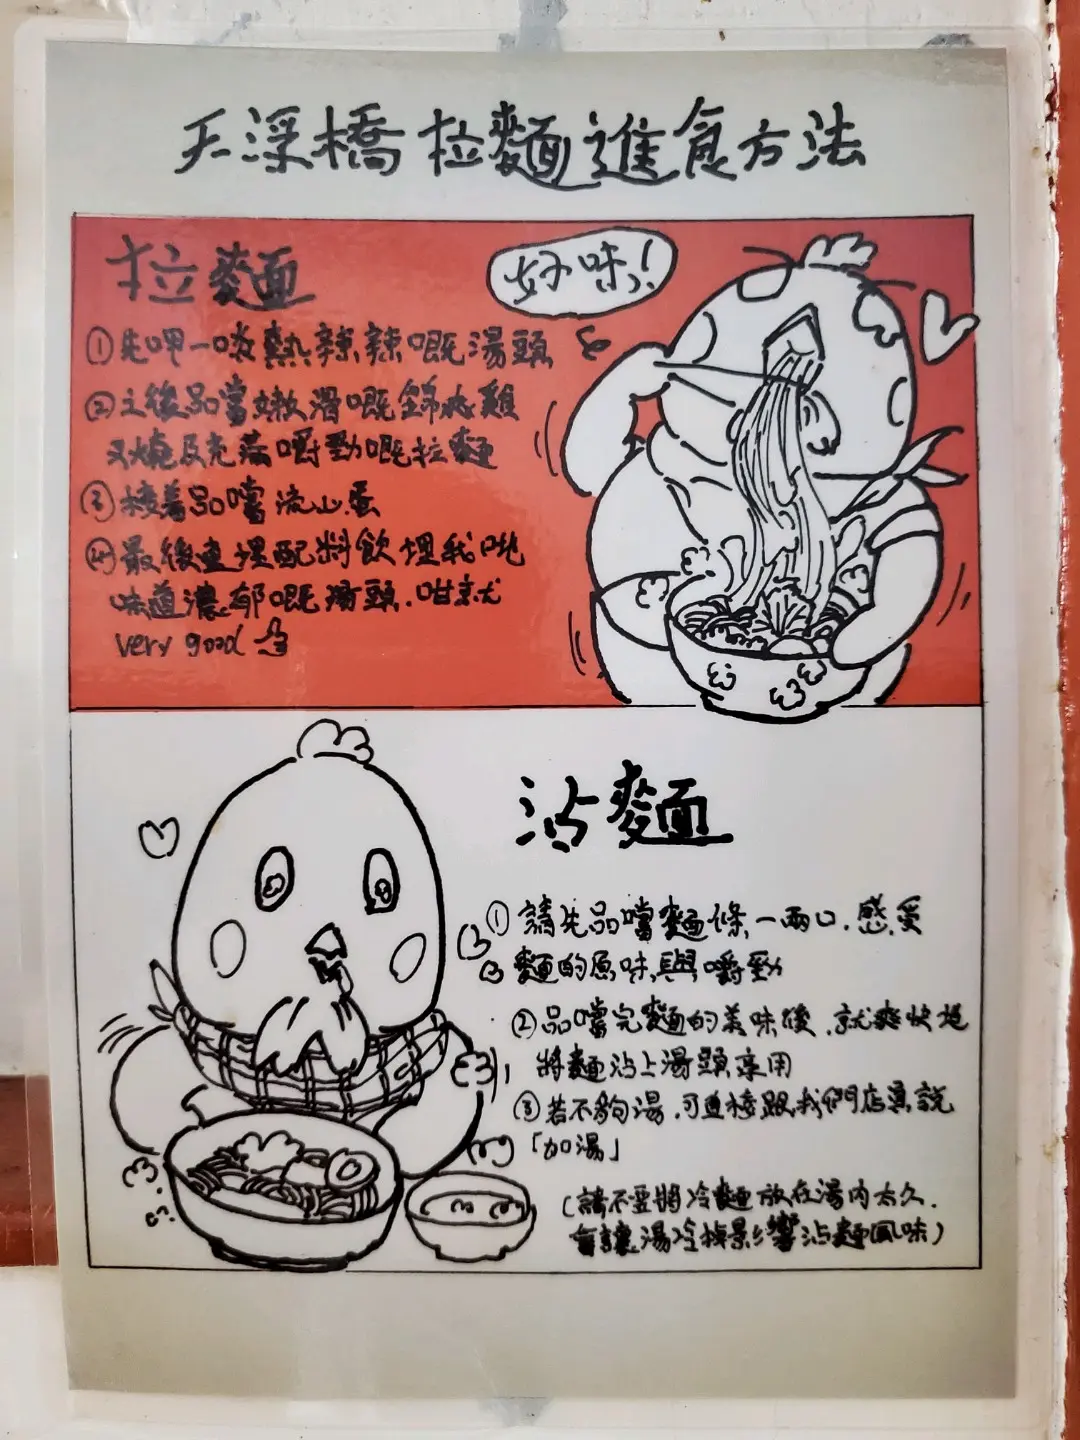 天浮橋拉麵進食方法
拉麵
好味!
①先呷一啖熱辣辣嘅湯頭
②之後品嘗嫩滑嘅雞
叉燒及充滿嚼勁嘅拉麵
③接著品嚐流心蛋
④最後連埋配料飲埋我哋
味道濃郁嘅湯頭.咁就
very good
沾麵
①請先品嚐麵條一兩口.感受
麵的原味與嚼勁
②品嚐完麵的美味後.就爽快地
將麵沾上湯頭享用
③若不夠湯.可直接跟我們店員說
「加湯」
(請不要將冷麵放在湯內太久.
會讓湯冷掉影響沾麵風味)